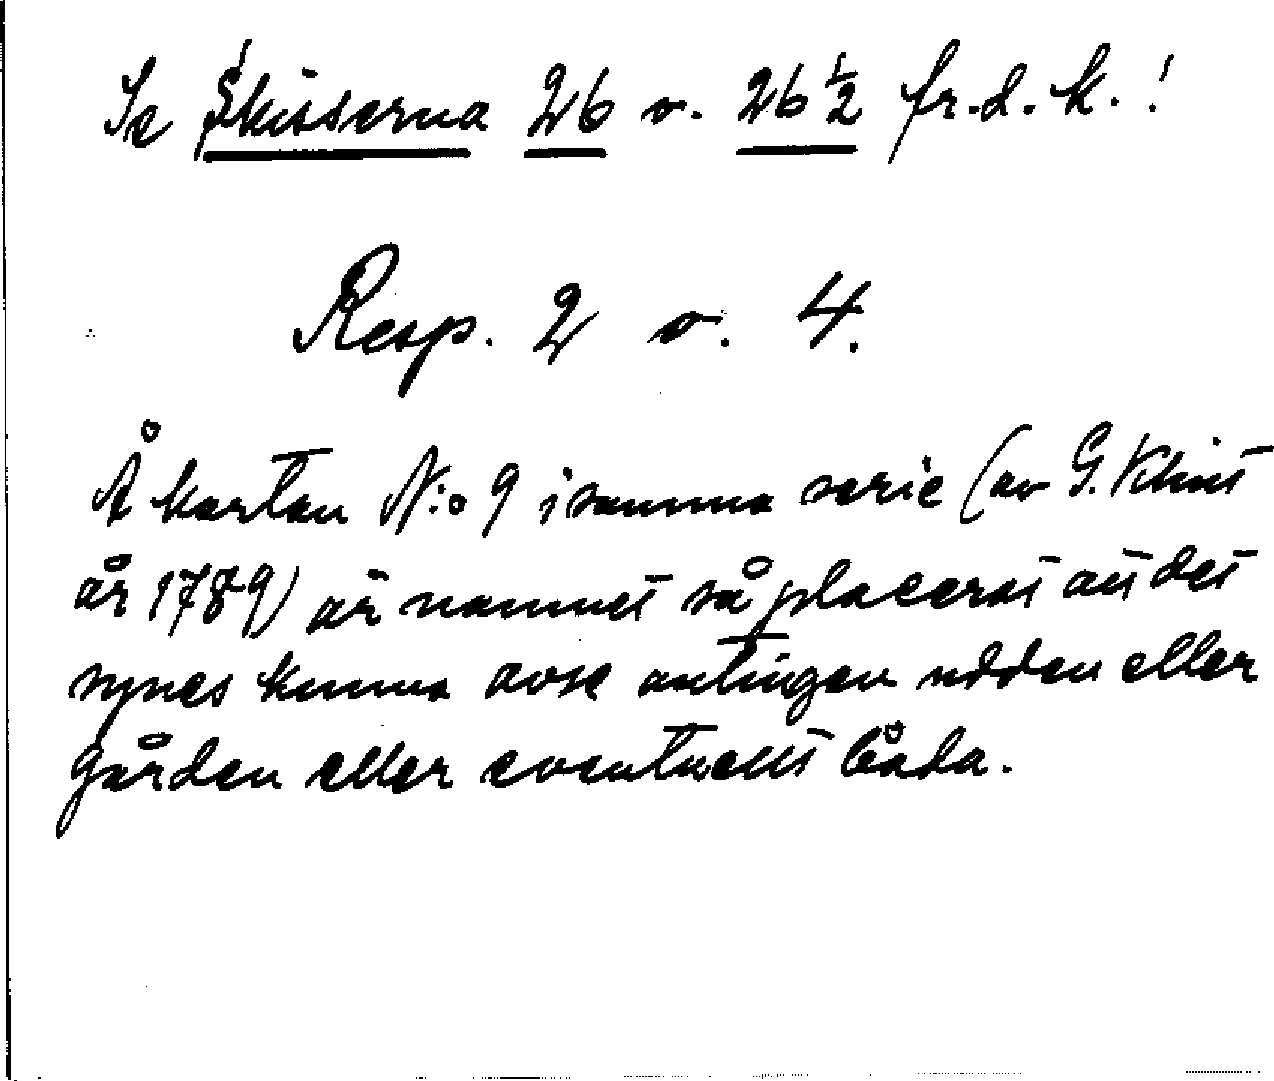 Se Skisserna 26 o. 26 ½ fr. d. k. !
Resp. 2 o. 4.
Å kartan N:o 9 i samma serie (av G. Klint
år 1789) är namnet så placerat att det
synes kunna avse antingen udden eller
gården eller eventuellt båda.